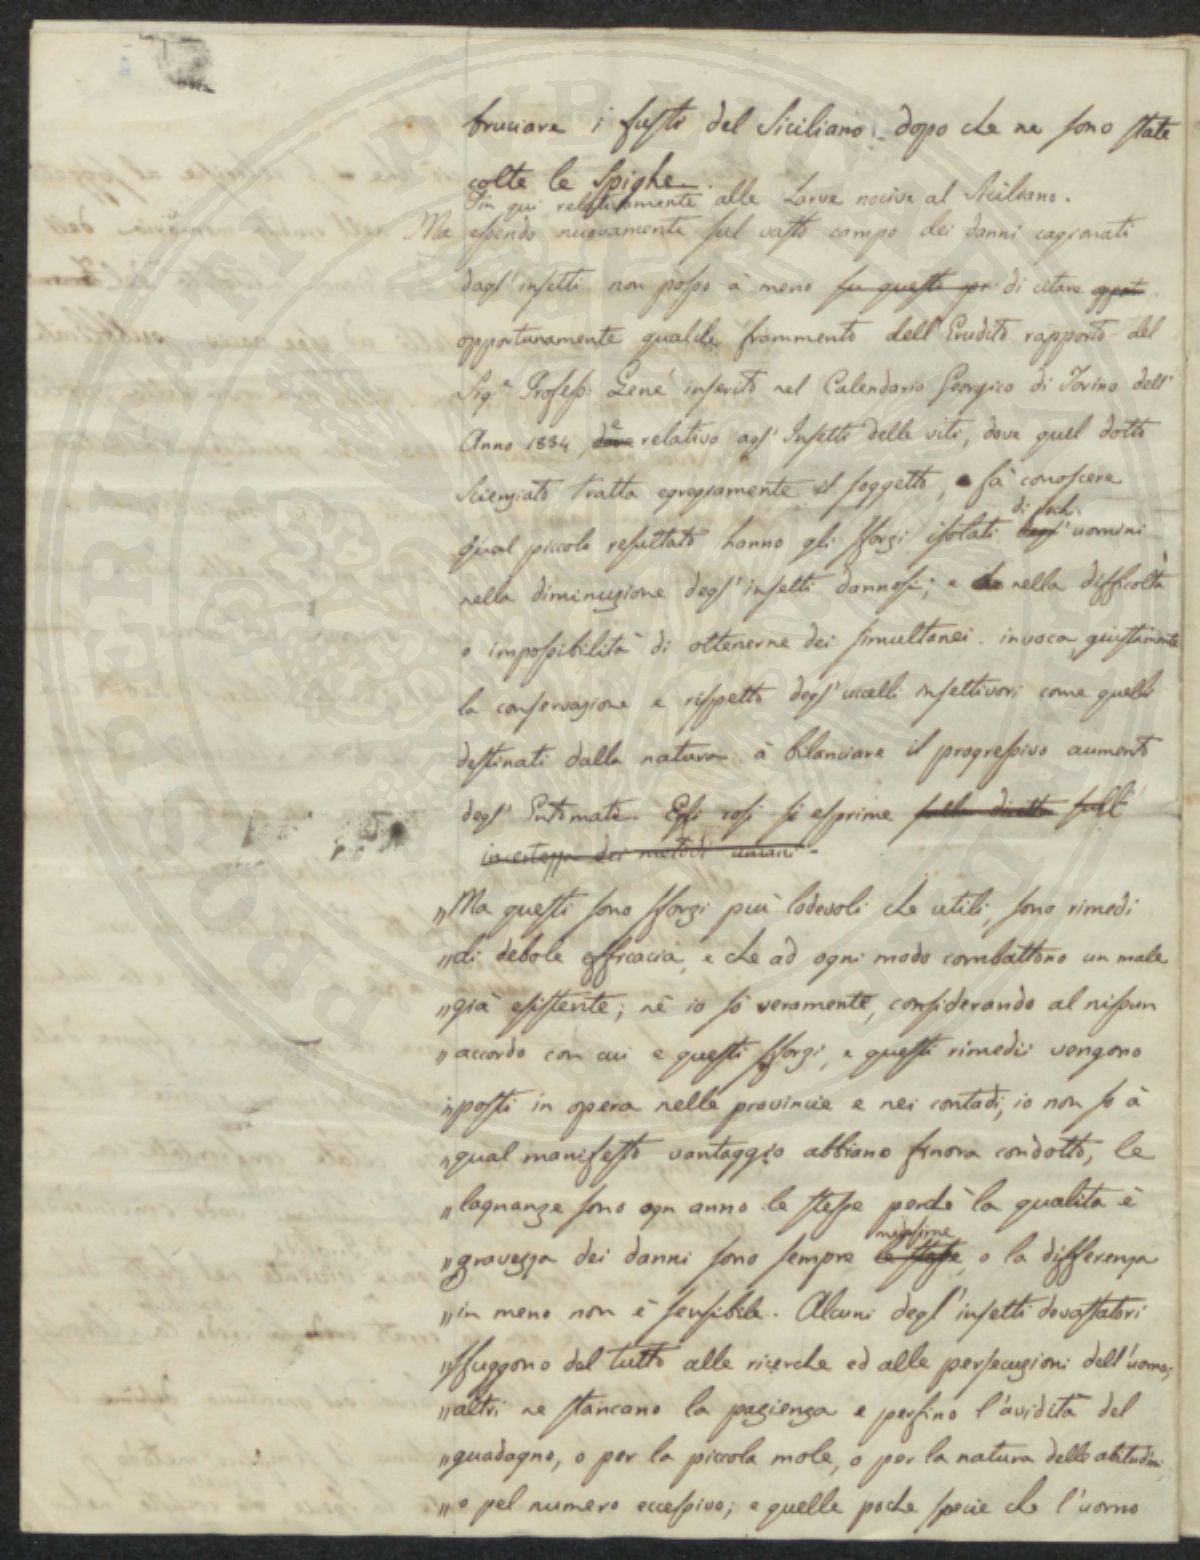 bruciare i fusti del Siciliano dopo che ne sono state
colte le Spighe.
Fin qui relativamente alle Larve nocive al Siciliano.
Ma essendo nuovamente sul vasto campo dei danni cagionati
dagl'insetti non posso à meno su questo pr di citare oppor
opportunamente qualche frammento dell'Erudito rapporto del
Sigr. Profess. Gené inserito nel Calendario Georgico di Torino dell'
Anno 1834, dove e relativo agl'Insetti delle viti, dove quel dotto
Scienziato tratta egregiamente il soggetto, fà conoscere
di pochi
Qual piccolo resultato hanno gli sforzi isolati degl' uomini
nella diminuzione degl'insetti dannosi; e nella difficoltà
o impossibilità di ottenerne dei simultanei invoca giustamente
la conservazione e rispetto degl'uccelli insettivori come quelli
destinati dalla natura à bilanciare il progressivo aumento
degl' Entomati. Egli così si esprime sulla diretta sull'
incertezza dei metodi umani -
„Ma questi sono sforzi più lodevoli che utili, sono rimedi
„di debole efficacia, e che ad ogni modo combattono un male
„già esistente; nè io sò veramente, considerando al nissun
„accordo con cui e questi sforzi, e questi rimedii vengono
„posti in opera nelle provincie e nei contadi, io non so à
„qual manifesto vantaggio abbiano finora condotto, le
„lagnanze sono ogn anno le stesse perchè la qualità è
medesime
„gravezza dei danni sono sempre le stesse, o la differenza
„in meno non è sensibile. Alcuni degl'insetti devastatori
„sfuggono del tutto alle ricerche ed alle persecuzioni dell'uomo;
„altri ne stancano la pazienza e perfino l'avidità del
„guadagno, o per la piccola mole, o per la natura delle abitudini,
„o pel numero eccessivo; e quelle poche specie che l'uomo